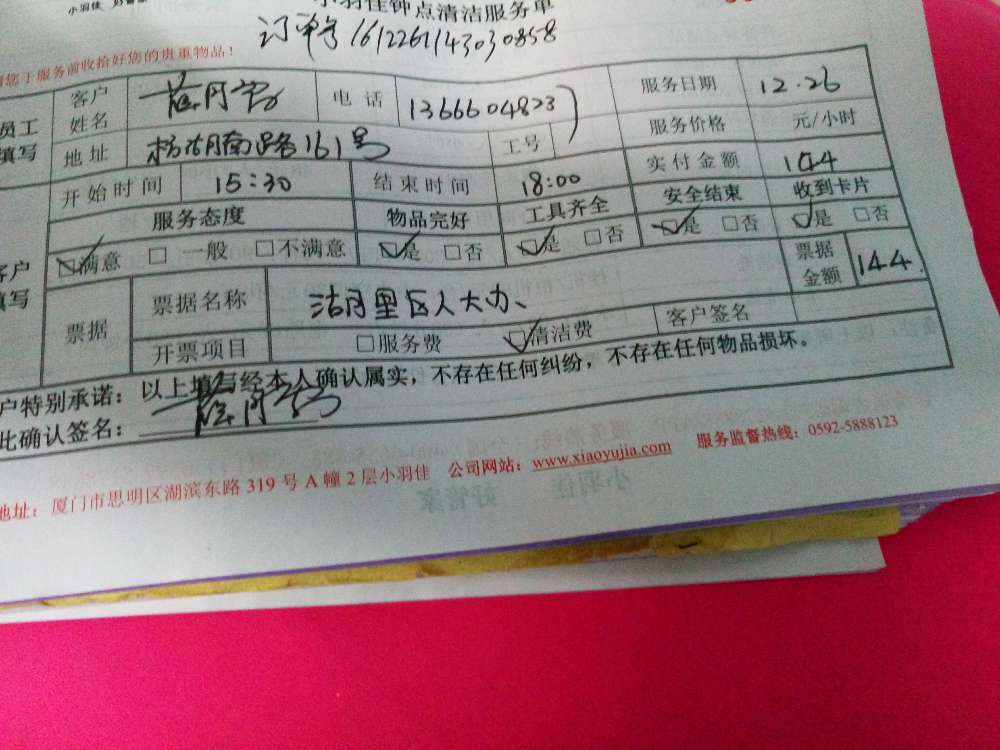 小羽佳
小羽佳钟点清洁服务单
订单号 1612261143030858
请您于服务前收拾好您的贵重物品！
员工填写 客户姓名 电话 13666604823 服务日期 12.26
地址 杨湖南路161号 工号 服务价格 元/小时
开始时间 15:30 结束时间 18:00 实付金额 144
服务态度 物品完好 工具齐全 安全结束 收到卡片
客户填写 ☑满意 □一般 □不满意 ☑是 □否 ☑是 □否 ☑是 □否 ☑是 □否
票据 票据名称 湖里区人大办、 票据金额 144.
开票项目 □服务费 ☑清洁费 客户签名
户特别承诺：以上填写经本人确认属实，不存在任何纠纷，不存在任何物品损坏。
此确认签名：
地址：厦门市思明区湖滨东路 319 号 A 幢 2 层小羽佳 公司网站：www.xiaoyujia.com 服务监督热线：0592-5888123